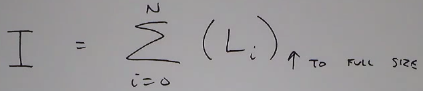 I = \sum_{i=0}^{N} (L_i)_{↑ TO FULL SIZE}